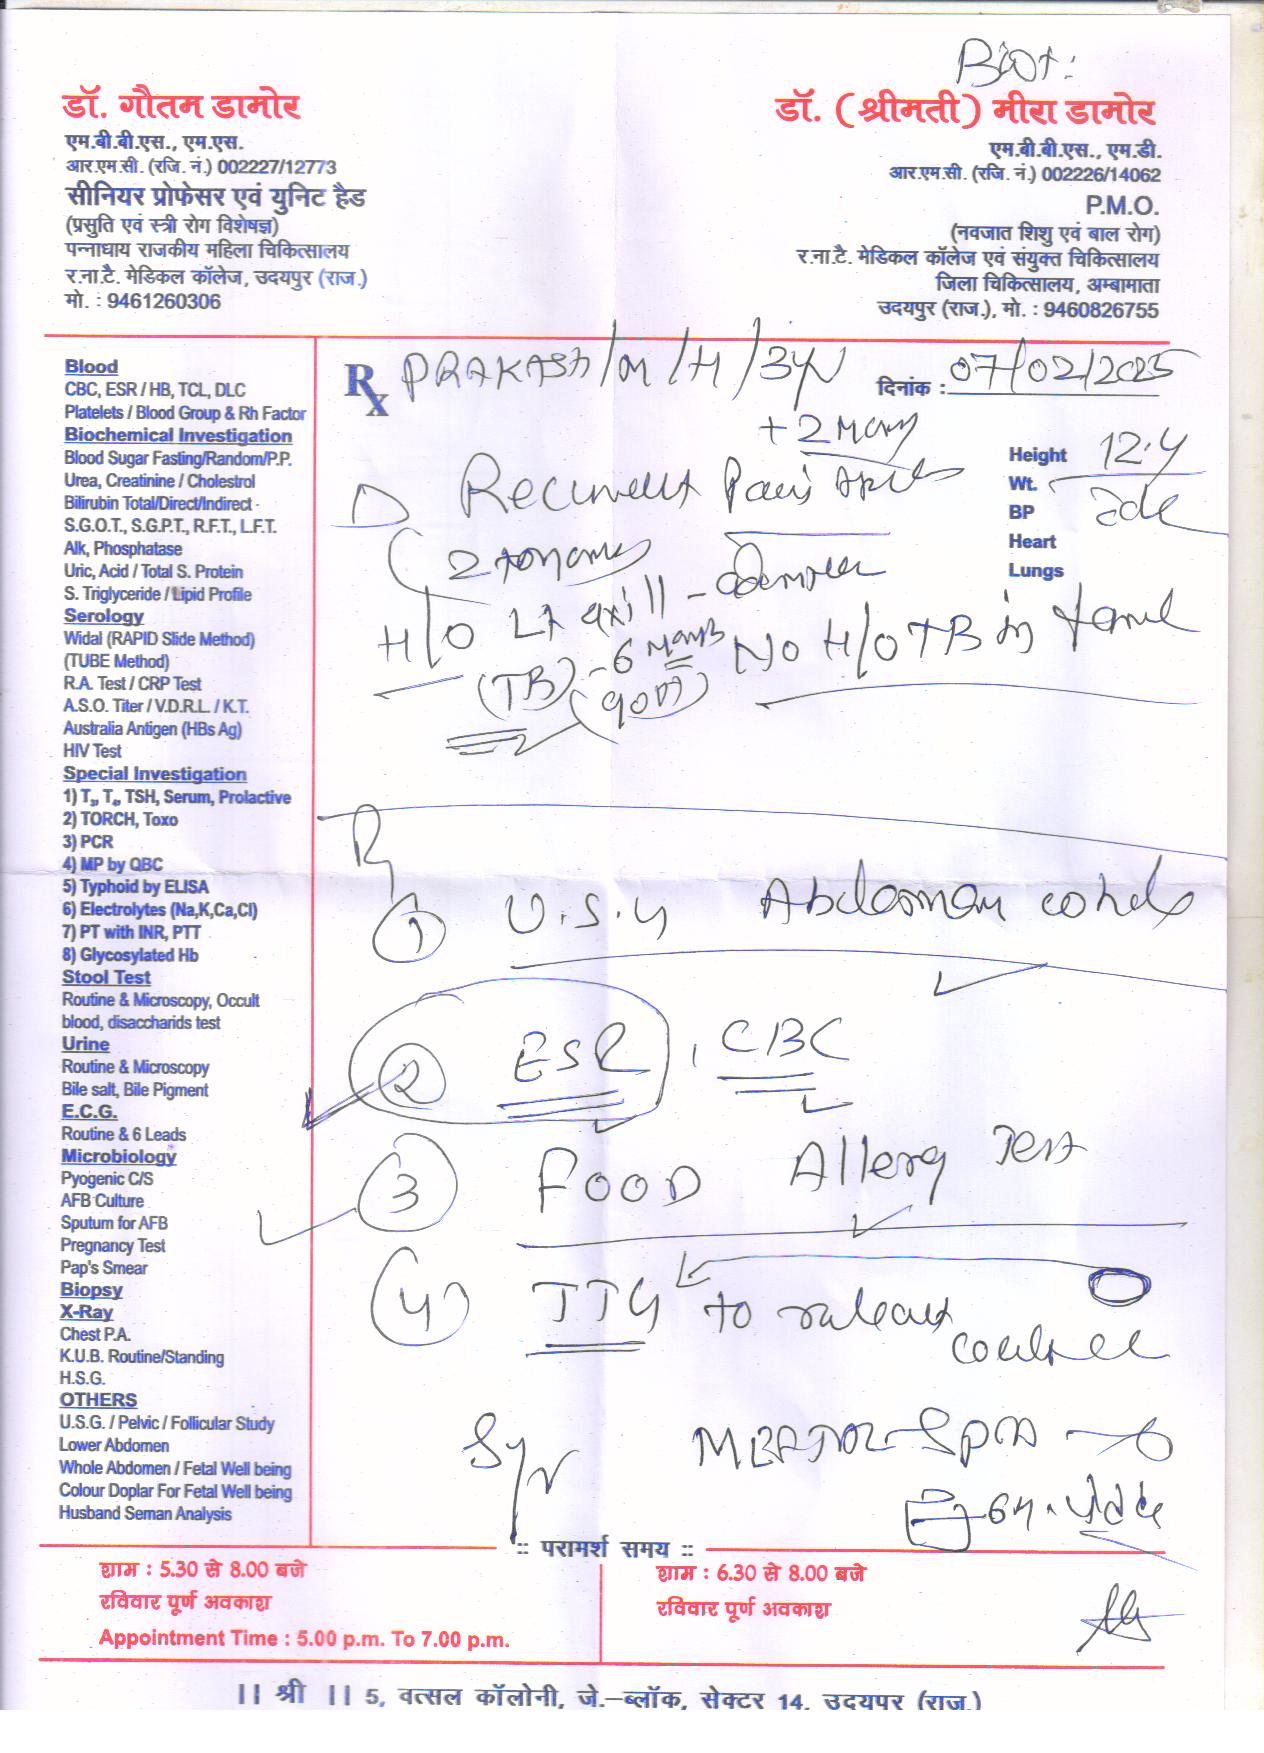 डॉ. गौतम डामोर
एम.बी.बी.एस., एम.एस.
आर.एम.सी. (रजि. नं.) 002227/12773
सीनियर प्रोफेसर एवं युनिट हैड
(प्रसुति एवं स्त्री रोग विशेषज्ञ)
पन्नाधाय राजकीय महिला चिकित्सालय
र.ना.टै. मेडिकल कॉलेज, उदयपुर (राज.)
मो. : 9461260306
डॉ. (श्रीमती) मीरा डामोर
एम.बी.बी.एस., एम.डी.
आर.एम.सी. (रजि. नं.) 002226/14062
P.M.O.
(नवजात शिशु एवं बाल रोग)
र.ना.टै. मेडिकल कॉलेज एवं संयुक्त चिकित्सालय
जिला चिकित्सालय, अम्बामाता
उदयपुर (राज.), मो. : 9460826755
Blood
CBC, ESR / HB, TCL, DLC
Platelets / Blood Group & Rh Factor
Biochemical Investigation
Blood Sugar Fasting/Random/P.P.
Urea, Creatinine / Cholestrol
Bilirubin Total/Direct/Indirect -
S.G.O.T., S.G.P.T., R.F.T., L.F.T.
Alk, Phosphatase
Uric, Acid / Total S. Protein
S. Triglyceride / Lipid Profile
Serology
Widal (RAPID Slide Method)
(TUBE Method)
R.A. Test / CRP Test
A.S.O. Titer / V.D.R.L. / K.T.
Australia Antigen (HBs Ag)
HIV Test
Special Investigation
1) T₃, T₄, TSH, Serum, Prolactive
2) TORCH, Toxo
3) PCR
4) MP by QBC
5) Typhoid by ELISA
6) Electrolytes (Na,K,Ca,Cl)
7) PT with INR, PTT
8) Glycosylated Hb
Stool Test
Routine & Microscopy, Occult
blood, disaccharids test
Urine
Routine & Microscopy
Bile salt, Bile Pigment
E.C.G.
Routine & 6 Leads
Microbiology
Pyogenic C/S
AFB Culture
Sputum for AFB
Pregnancy Test
Pap's Smear
Biopsy
X-Ray
Chest P.A.
K.U.B. Routine/Standing
H.S.G.
OTHERS
U.S.G. / Pelvic / Follicular Study
Lower Abdomen
Whole Abdomen / Fetal Well being
Colour Doplar For Fetal Well being
Husband Seman Analysis
Rx PRAKASH/M/H/3Y दिनांक : 07/02/2025
+ 2
Height 12.4
Wt.
BP
Heart
Lungs
Recurrent Pain
2
H/O Lt axill - No H/O TB in
(TB) - 6
R
1 U.S.G Abdoman
2 ESR, CBC
3 FOOD Allergy Test
4 TTG to
Syr
6
:: परामर्श समय ::
शाम : 5.30 से 8.00 बजे
रविवार पूर्ण अवकाश
Appointment Time : 5.00 p.m. To 7.00 p.m.
शाम : 6.30 से 8.00 बजे
रविवार पूर्ण अवकाश
|| श्री || 5, वत्सल कॉलोनी, जे.-ब्लॉक, सेक्टर 14, उदयपुर (राज.)